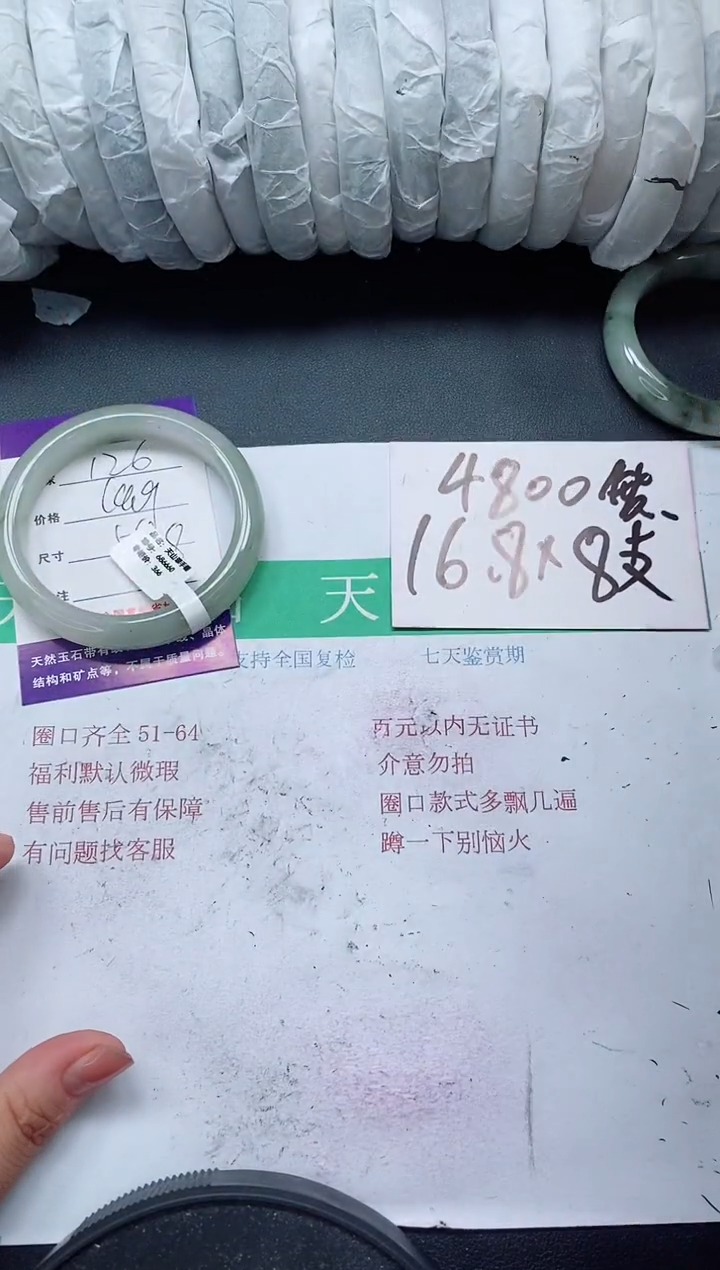 126
价格
尺寸
注
天山翠手镯
686660
366
天然玉石带有
晶体
结构和矿点等，不属于质量问题。
4800
16.8x8支
天
支持全国复检
七天鉴赏期
圈口齐全 51-64
福利默认微瑕
售前售后有保障
有问题找客服
百元以内无证书
介意勿拍
圈口款式多飘几遍
蹲一下别恼火